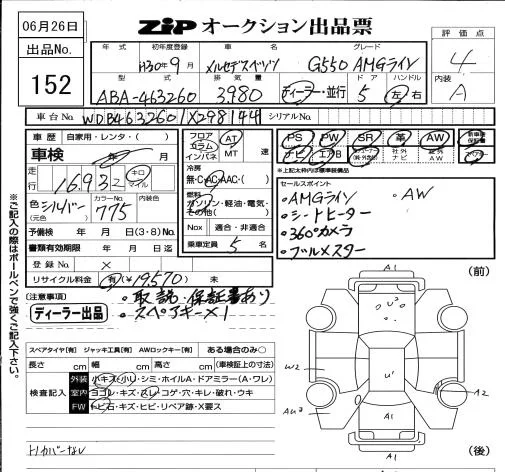 06月26日
ZIP オークション出品票
出品No.
152
年 式 初年度登録 車 名 グレード
H30年9月 メルセデスベンツ G550 AMGライン
型 式 排 気 量 ド ア ハンドル
ABA-463260 3980 ディーラー・並行 5 左・右
評 価 点
4
内装
A
車台No. WDB4632601X298144 シリアルNo.
車 歴 自家用・レンタ・( )
車検 年 月
走行 16,932 キロ マイル
色 (元色) シルバー カラーNo. 775 内装色
予備検 年 月 日(3・8)No.
書類有効期限 年 月 日迄
登録No. ×
リサイクル料金 有(¥19,570) 未
フロア コラム インパネ AT MT 速
冷房
無・C・AC・AAC・( )
燃料
ガソリン・軽油・電気・その他( )
Nox 適合・非適合
乗車定員 5 名
PS PW SR 革 AW
ナビ エアB
*上記太枠内は標準装備品
セールスポイント
・AMGライン ・AW
・シートヒーター
・360°カメラ
・ブルメスター
(注意事項) ・取説・保証書あり
ディーラー出品 ・スペアキー×1
スペアタイヤ[有] ジャッキ工具[有] AWロックキー[有] ある場合のみ○
長さ cm 幅 cm 高さ cm (車検証上の寸法)
検査記入
外装 小キズ・小凹・シミ・ホイルA・ドアミラー(A・ワレ)
室内 ヨゴレ・キズ・スレ・コゲ・穴・キレ・破れ・ウキ
FW トビ石・キズ・ヒビ・リペア跡・X要ス
トノカバーなし
(前)
A1
U2
U1
W2
A2
A1
A1
(後)
※ご記入の際はボールペンで強くご記入下さい。